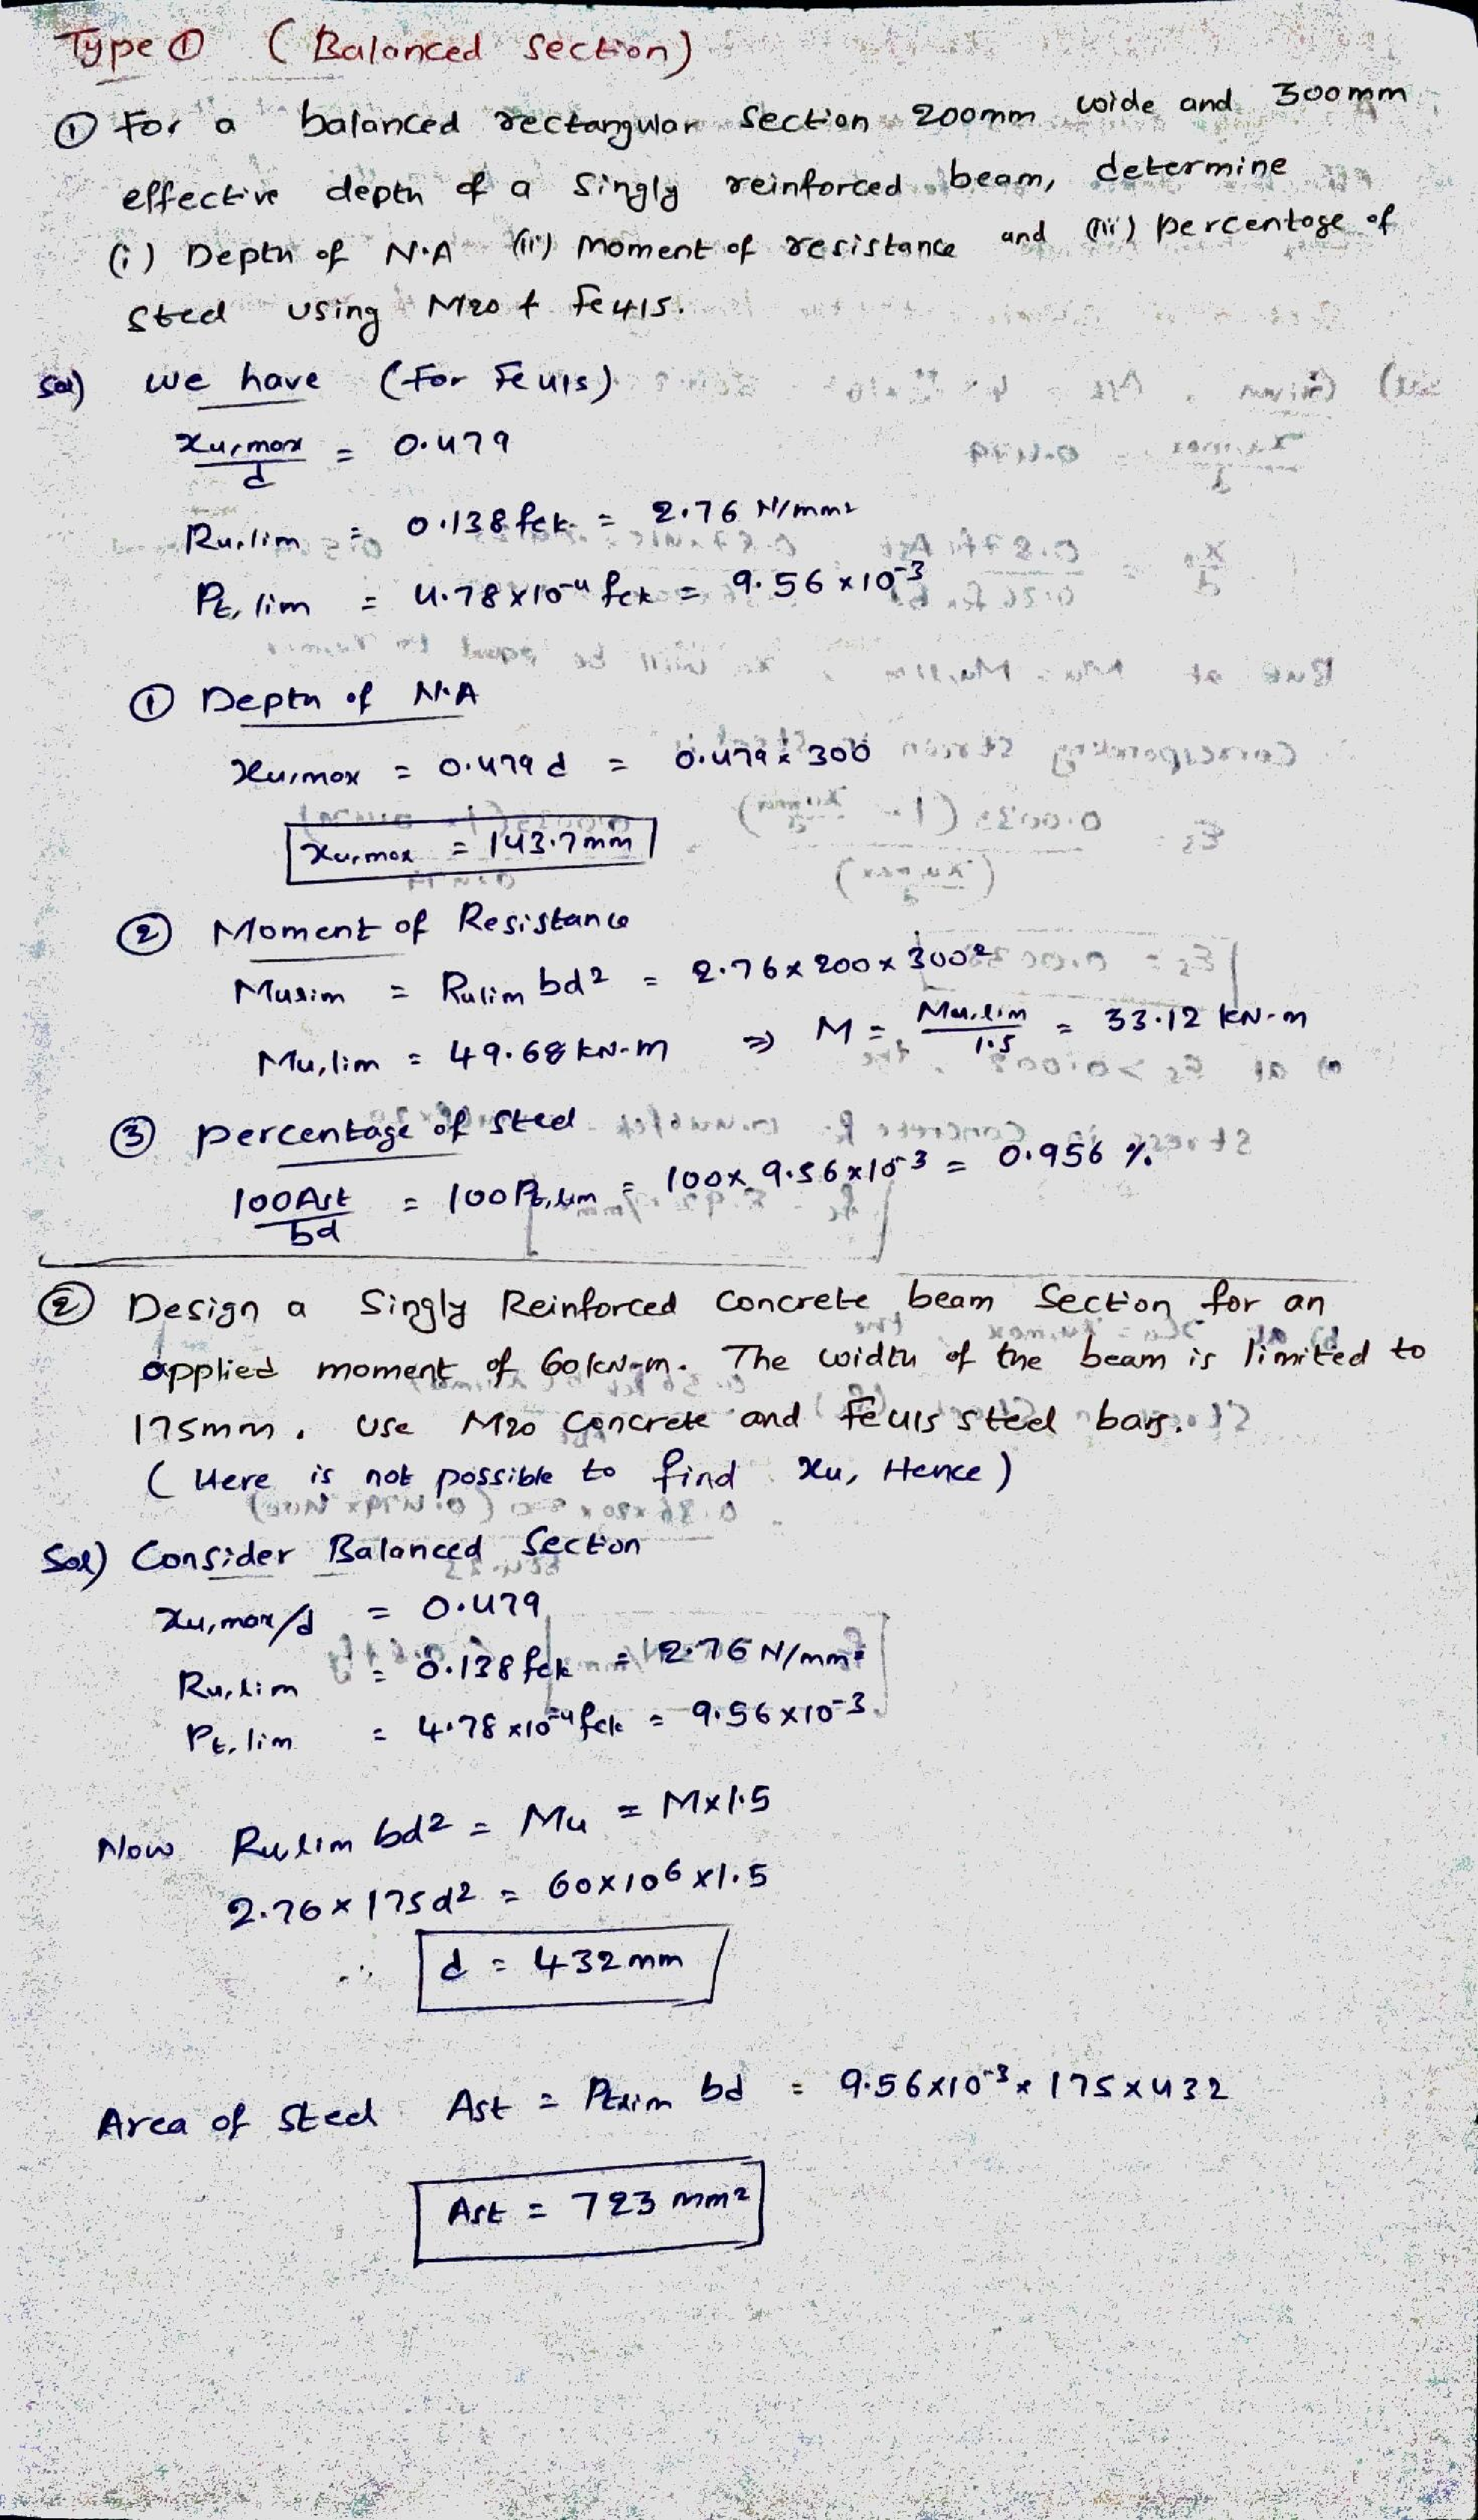 Type ① (Balanced section)
① For a balanced rectangular section 200mm wide and 300mm
effective depth of a singly reinforced beam, determine
(i) Depth of N.A (ii) Moment of resistance and (iii) percentage of
steel using M20 & Fe415.
Sol) we have (For Fe415)
xu,max/d = 0.479
Ru,lim = 0.138 fck = 2.76 N/mm2
Pt,lim = 4.78x10-4 fck = 9.56x10-3
① Depth of N.A
xu,max = 0.479 d = 0.479 x 300
xu,max = 143.7mm
② Moment of Resistance
Mu,lim = Rulim bd2 = 2.76 x 200 x 3002
Mu,lim = 49.68 kN-m => M = Mu,lim/1.5 = 33.12 kN-m
③ percentage of steel
100Ast/bd = 100 Pt,lim = 100x 9.56x10-3 = 0.956 %
② Design a Singly Reinforced concrete beam Section for an
applied moment of 60kN-m. The width of the beam is limited to
175mm. Use M20 Concrete and Fe415 steel bars.
(Here is not possible to find xu, Hence)
Sol) Consider Balanced Section
xu,max/d = 0.479
Ru,lim = 0.138 fck = 2.76 N/mm2
Pt,lim = 4.78x10-4 fck = 9.56x10-3
Now Rulim bd2 = Mu = Mx1.5
2.76 x 175d2 = 60x106 x1.5
∴ d = 432mm
Area of steel Ast = Ptlim bd = 9.56x10-3 x 175 x 432
Ast = 723 mm2